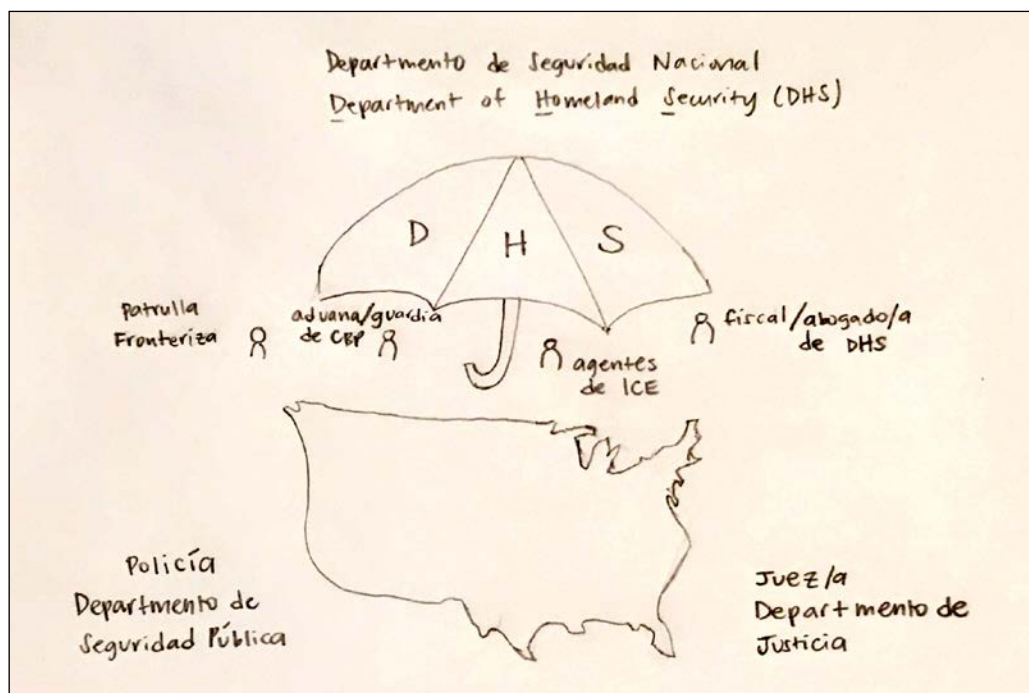 Departmento de Seguridad Nacional
Department of Homeland Security (DHS)
D H S
Patrulla
Fronteriza
aduana/guardia
de CBP
agentes
de ICE
fiscal/abogado/a
de DHS
Policía
Departmento de
Seguridad Pública
Juez/a
Departmento de
Justicia